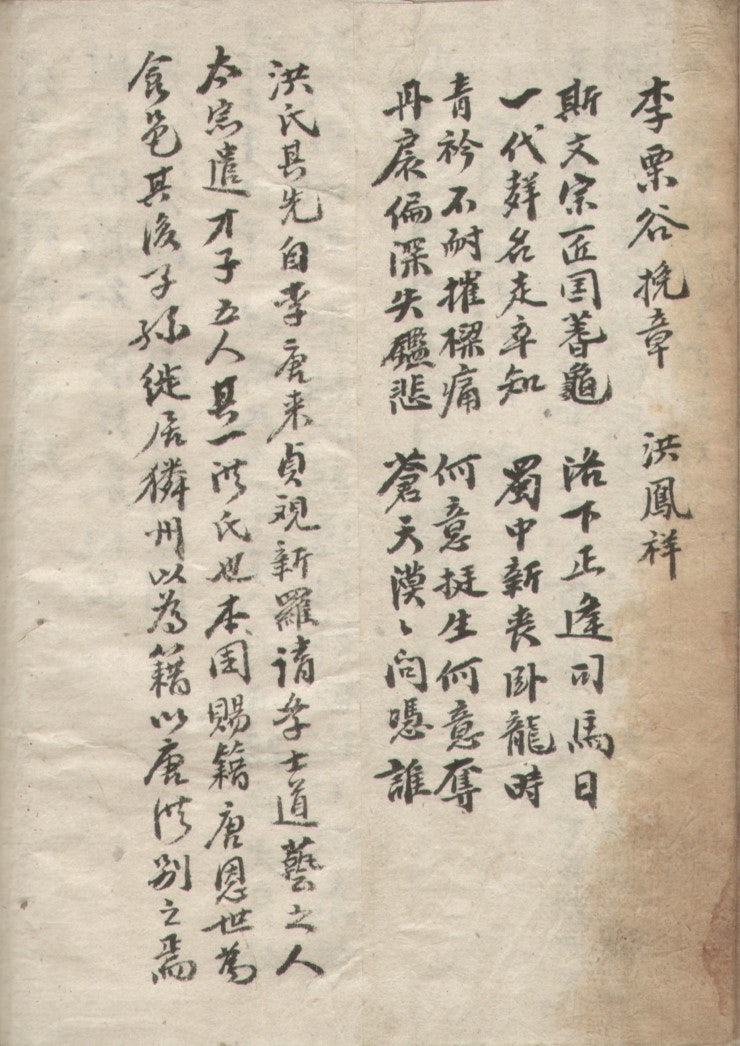 李栗谷挽章 洪鳳祥
斯文宗匠国蓍龜 洛下正逢司馬日
一代群名走卒知 蜀中新丧卧龍時
青衿不耐摧樑痛 何意挺生何意奪
丹扆偏深失鑑悲 蒼天漠〻问憑誰
洪氏其先自李唐来貞观新羅请学士道藝之人
太宗遣才子五人其一洪氏也本国賜籍唐恩世為
食邑其後子孫徙居獜州以為籍以唐洪别之焉